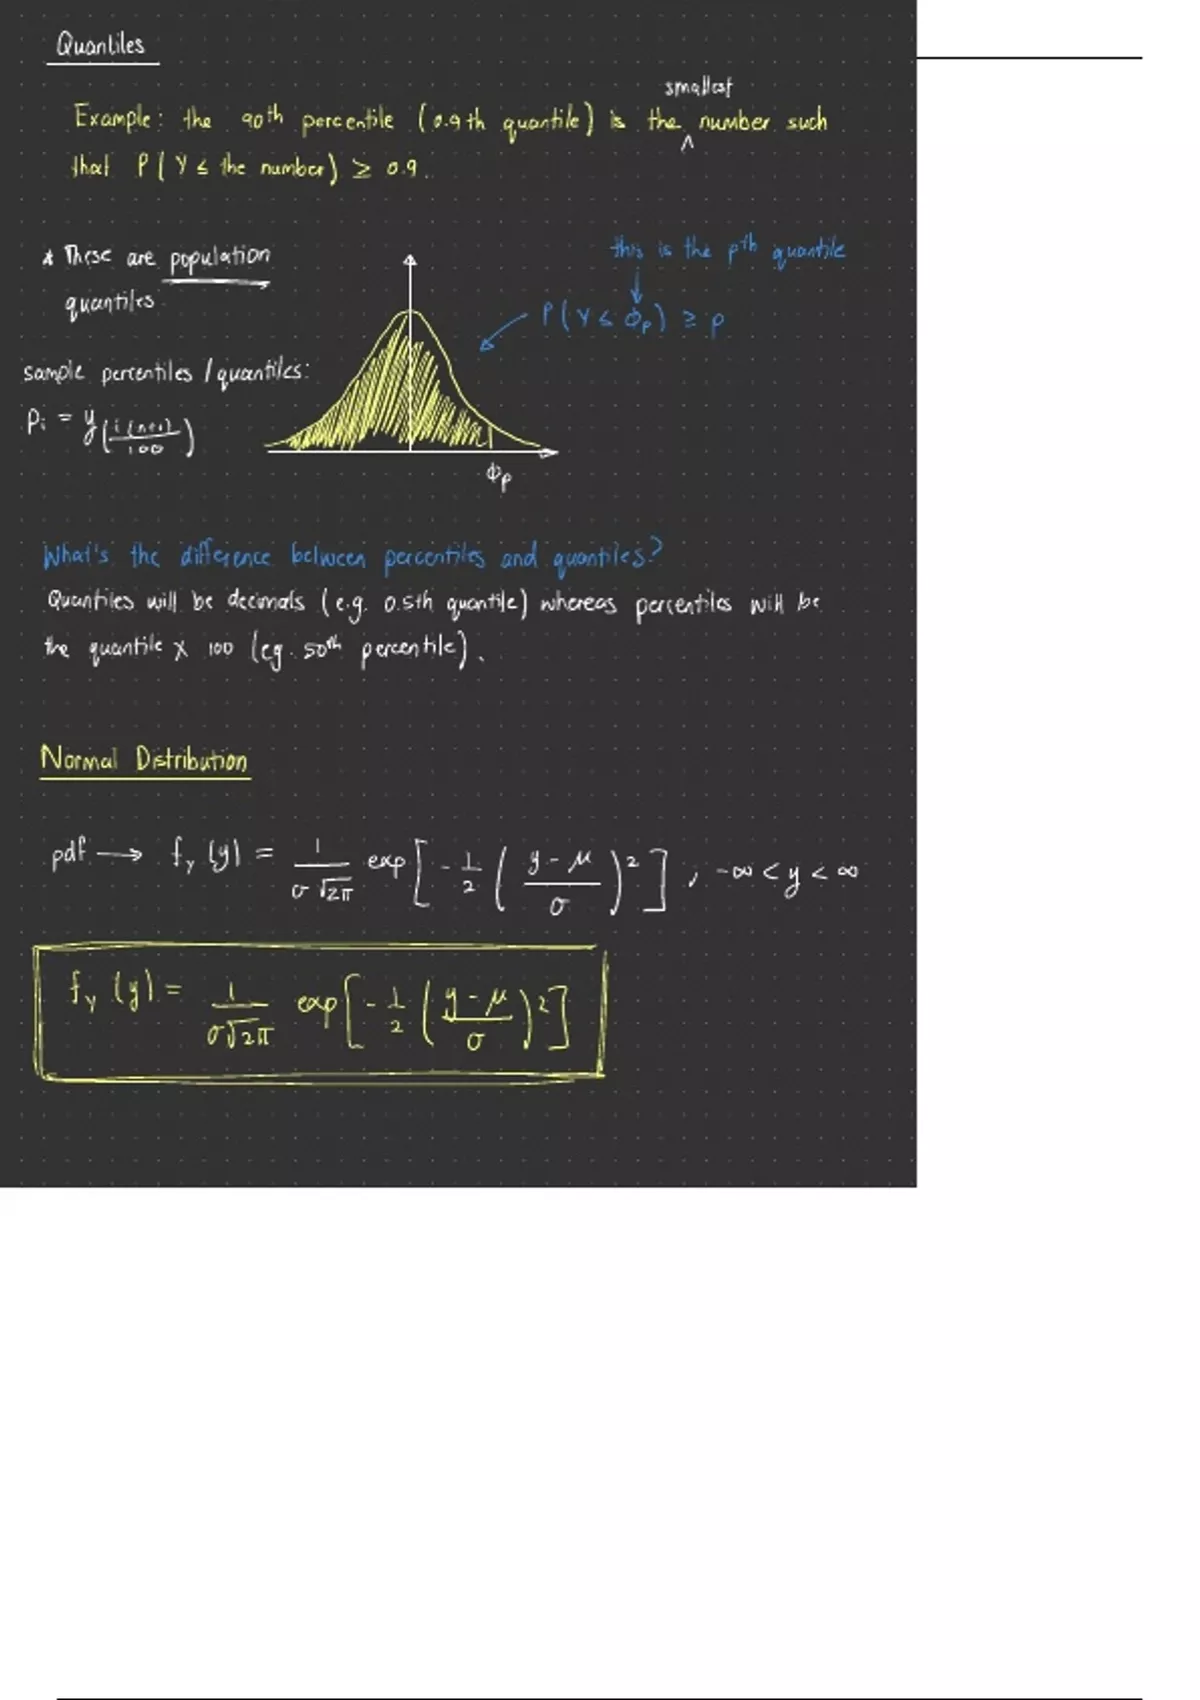 Quantiles
smallest
Example: the 90th percentile (0.9th quantile) is the ^ number such
that P(Y ≤ the number) ≥ 0.9.
* These are population
quantiles
this is the pth quantile
P(Y ≤ Φp) ≥ p
sample percentiles / quantiles:
Pi = y(i(n+1)/100)
Φp
What's the difference between percentiles and quantiles?
Quantiles will be decimals (e.g. 0.5th quantile) whereas percentiles will be
the quantile x 100 (eg. 50th percentile).
Normal Distribution
pdf → fY(y) = 1/(σ√2π) exp[-1/2((y-μ)/σ)²], -∞ < y < ∞
fY(y) = 1/(σ√2π) exp[-1/2((y-μ)/σ)²]